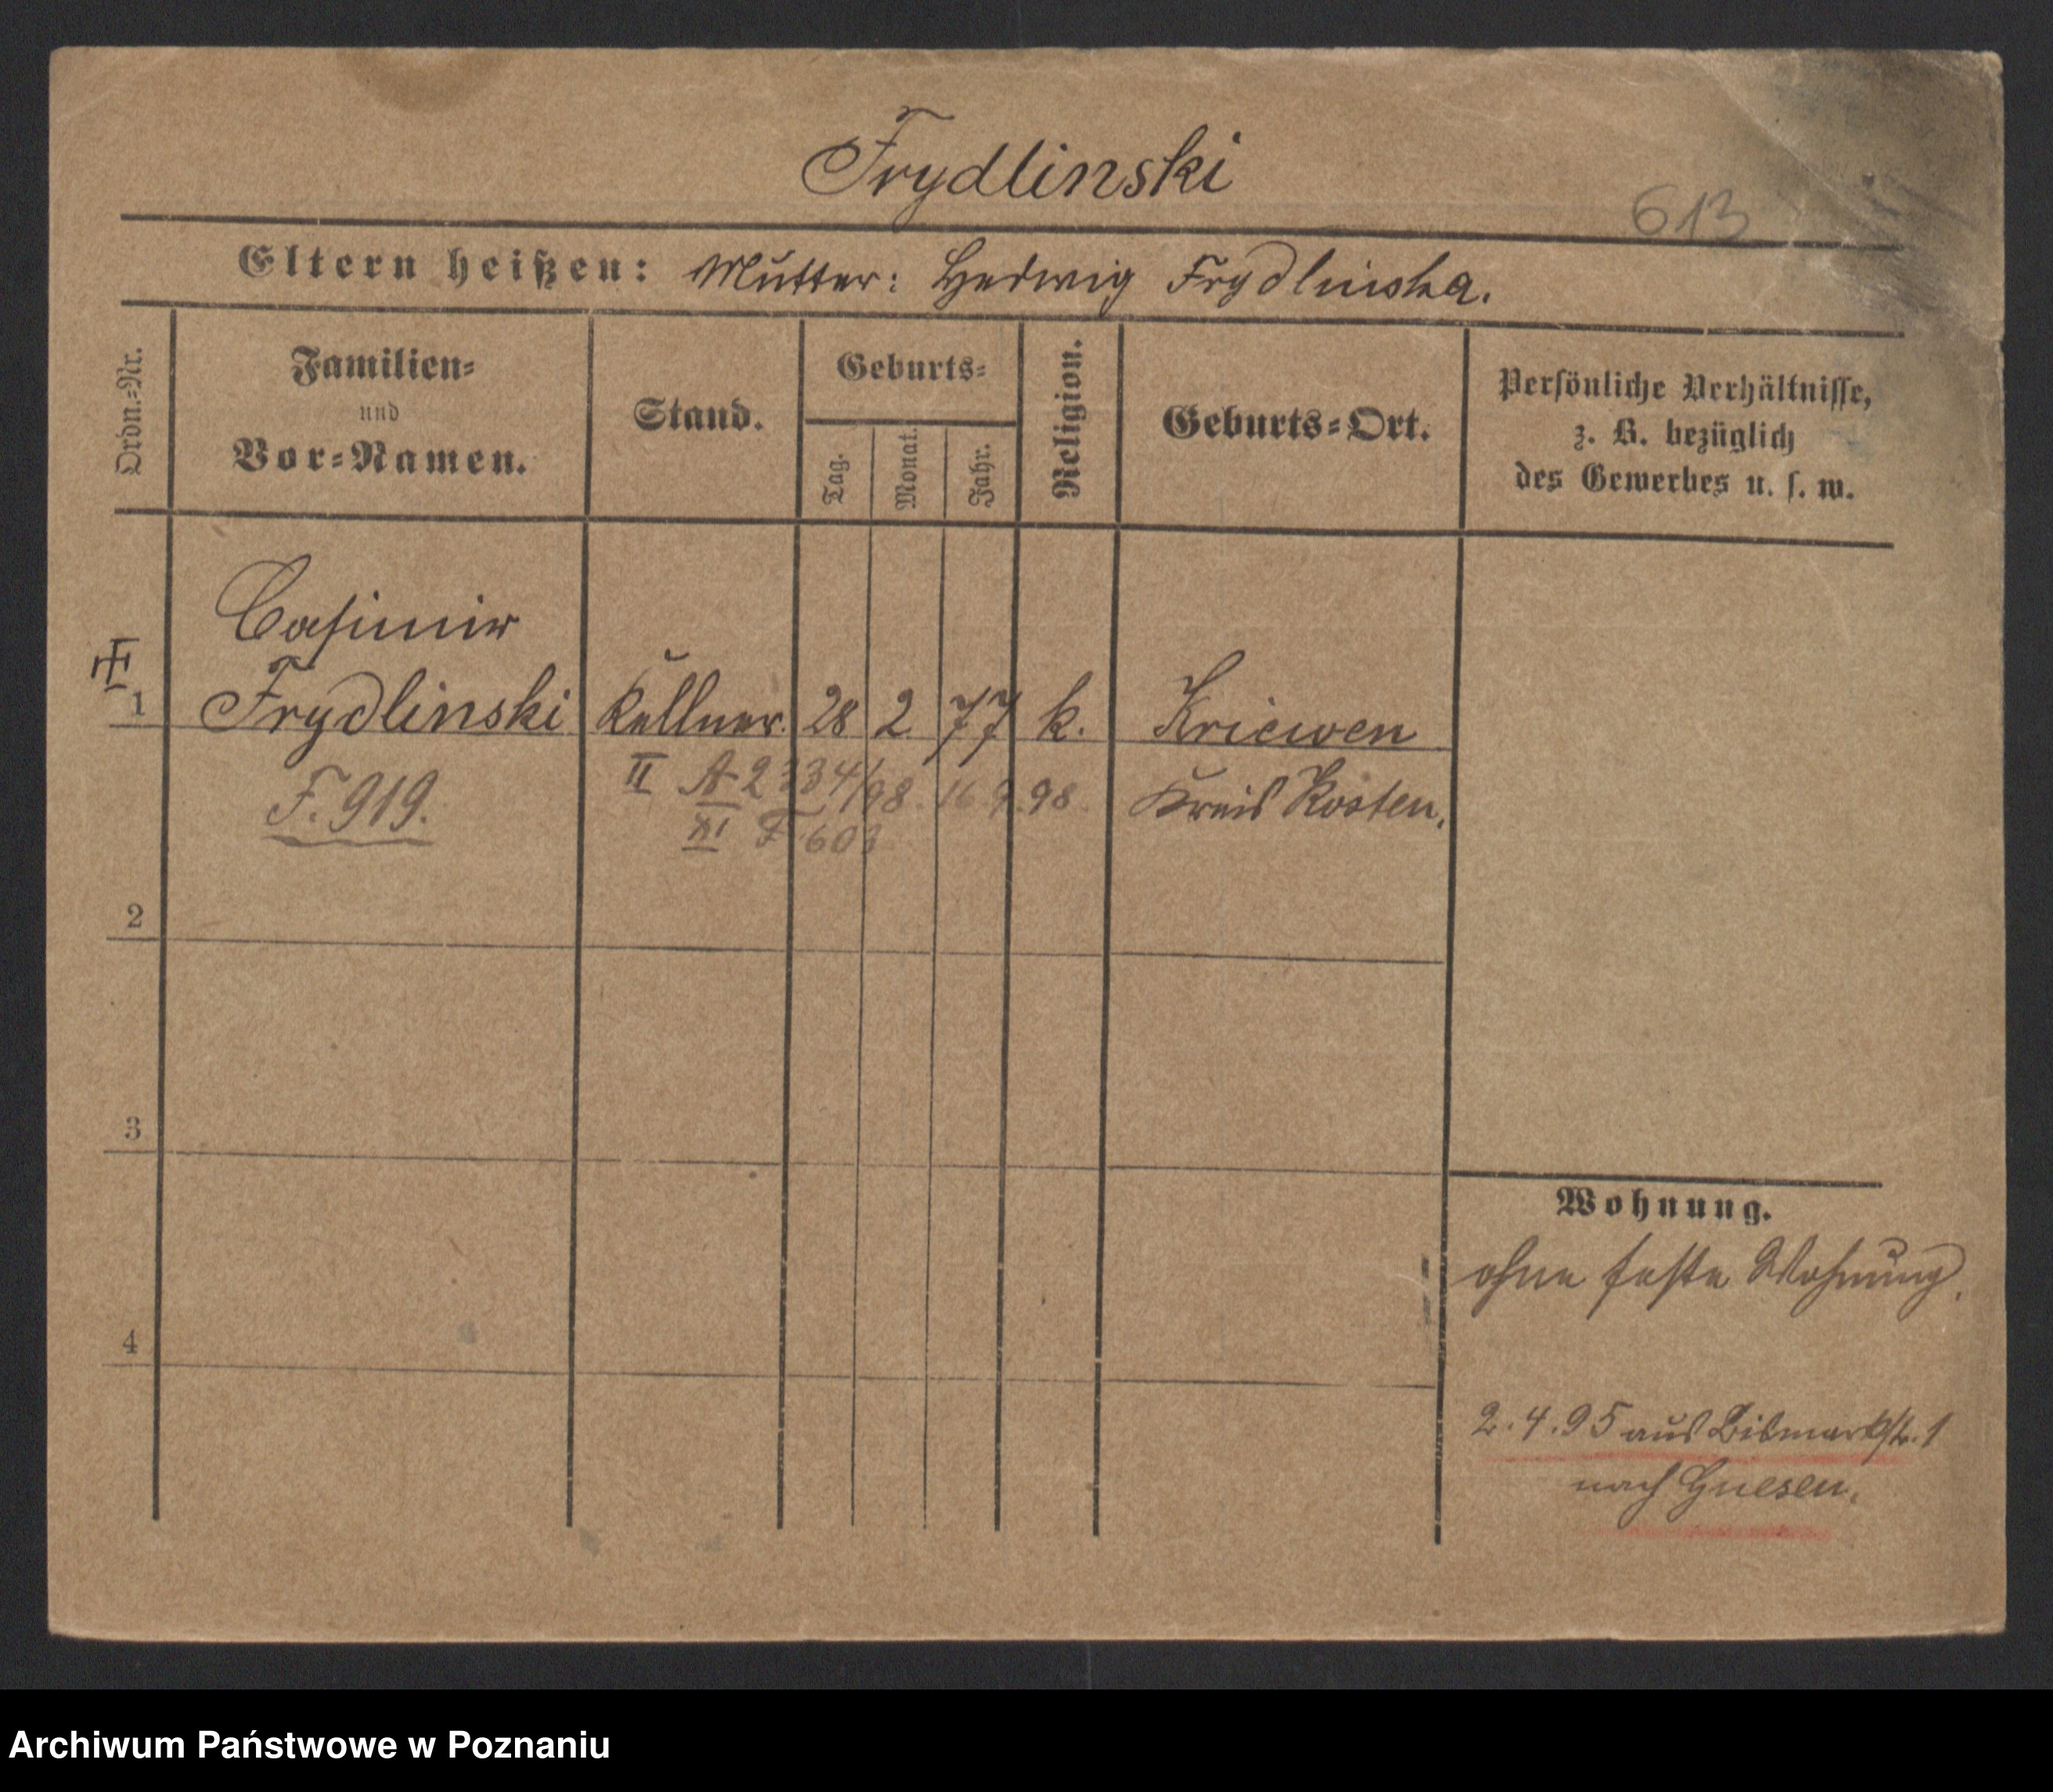 Frydlinski
613
Eltern heißen: Mutter: Hedwig Frydlinska.
Ordn.-Nr.
Familien- und Vor-Namen.
Stand.
Geburts-
Tag.
Monat.
Jahr.
Religion.
Geburts-Ort.
Persönliche Verhältnisse,
z. B. bezüglich
des Gewerbes u. s. w.
Casimir
1 Frydlinski Kellner. 28 2. 77 k. Kriewen
F. 919.
II A 2334/98. 16 9. 98
Kreis Kosten.
XI F 603
2
3
4
Wohnung.
ohne feste Wohnung.
2.4.95 aus Bismarkstr. 1
nach Gnesen.
Archiwum Państwowe w Poznaniu